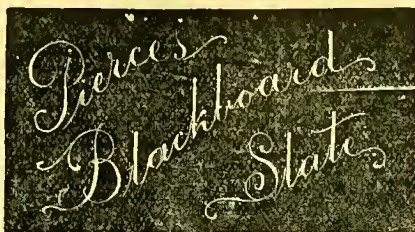 Pierces
Blackboard
Slate